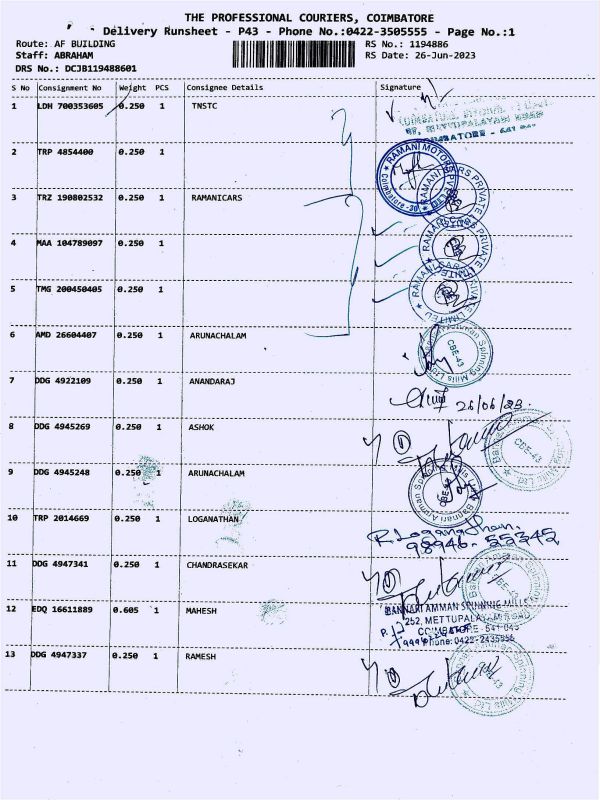 THE PROFESSIONAL COURIERS, COIMBATORE
Delivery Runsheet - P43 - Phone No.:0422-3505555 - Page No.:1
Route: AF BUILDING
RS No.: 1194886
Staff: ABRAHAM
RS Date: 26-Jun-2023
DRS No.: DCJB119488601
S No Consignment No Weight PCS Consignee Details Signature
1 LDH 700353605 0.250 1 TNSTC
COIMBATORE - 641
2 TRP 4854400 0.250 1
RAMANI MOTORS
Coimbatore-30
3 TRZ 190802532 0.250 1 RAMANICARS
RAMANI CARS PRIVATE
4 MAA 104789097 0.250 1
RAMANI CARS PRIVATE LIMITED
5 TMG 200450405 0.250 1
RAMANI CARS PRIVATE LIMITED
6 AMD 26604407 0.250 1 ARUNACHALAM
Bannari Amman Spinning Mills Ltd
CBE-43
7 DDG 4922109 0.250 1 ANANDARAJ
26/06/23
8 DDG 4945269 0.250 1 ASHOK
CBE-43
9 DDG 4945248 0.250 1 ARUNACHALAM
Bannari Amman Spinning Mills
CBE-43
10 TRP 2014669 0.250 1 LOGANATHAN
R. Loganathan.
98946-55345
11 DDG 4947341 0.250 1 CHANDRASEKAR
CBE-43
12 EDQ 16611889 0.605 1 MAHESH
BANNARI AMMAN SPINNING MILLS
252, METTUPALAYAM ROAD,
COIMBATORE - 641 043
Phone: 0422-2435556
13 DDG 4947337 0.250 1 RAMESH
CBE-43